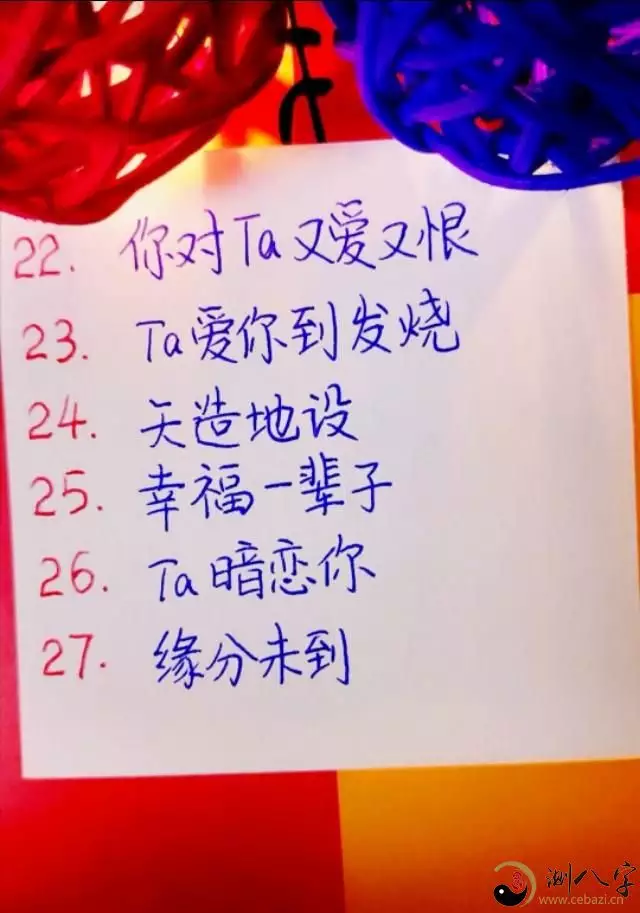 22. 你对Ta又爱又恨
23. Ta爱你到发烧
24. 天造地设
25. 幸福一辈子
26. Ta暗恋你
27. 缘分未到
测八字
www.cebazi.cn